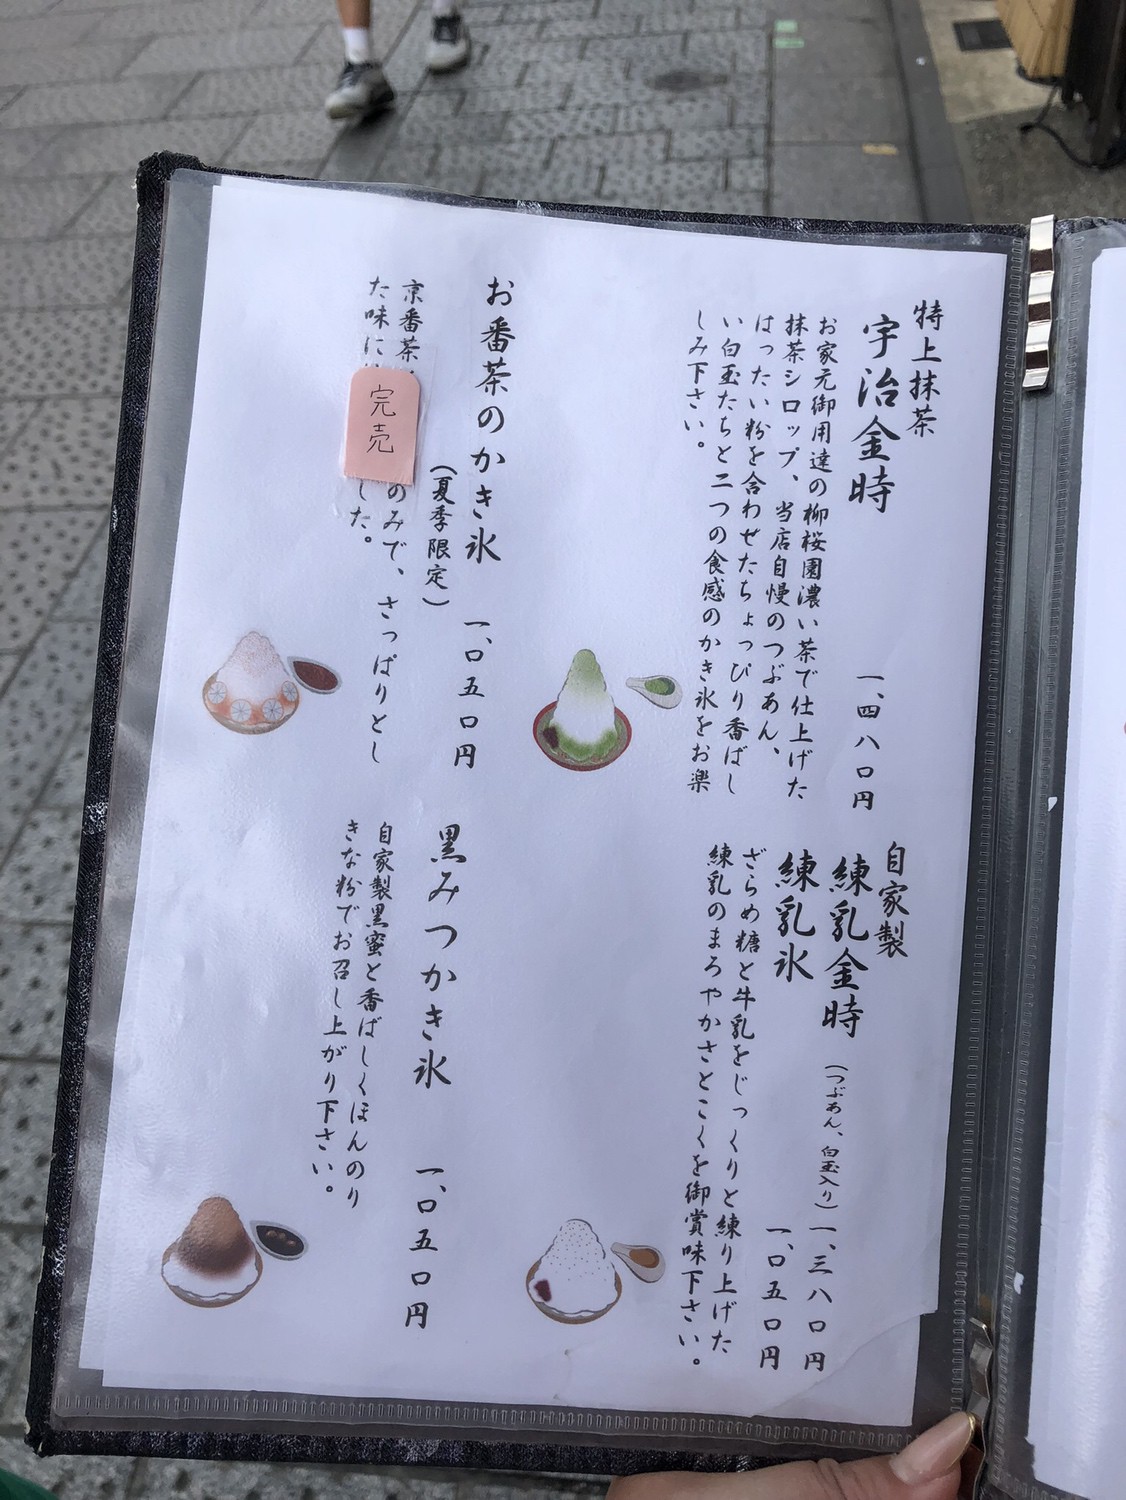 特上抹茶
宇治金時
一、四八〇円
お家元御用達の柳桜園濃い茶で仕上げた
抹茶シロップ、当店自慢のつぶあん、
はったい粉を合わせたちょっぴり香ばし
い白玉たちと二つの食感のかき氷をお楽
しみ下さい。
自家製
練乳金時
(つぶあん、白玉入り)
一、三八〇円
練乳氷
一、〇五〇円
ざらめ糖と牛乳をじっくりと練り上げた
練乳のまろやかさとこくを御賞味下さい。
お番茶のかき氷
(夏季限定)
一、〇五〇円
京番茶
のみで、さっぱりとし
た味に
した。
完売
黒みつかき氷
一、〇五〇円
自家製黒蜜と香ばしくほんのり
きな粉でお召し上がり下さい。